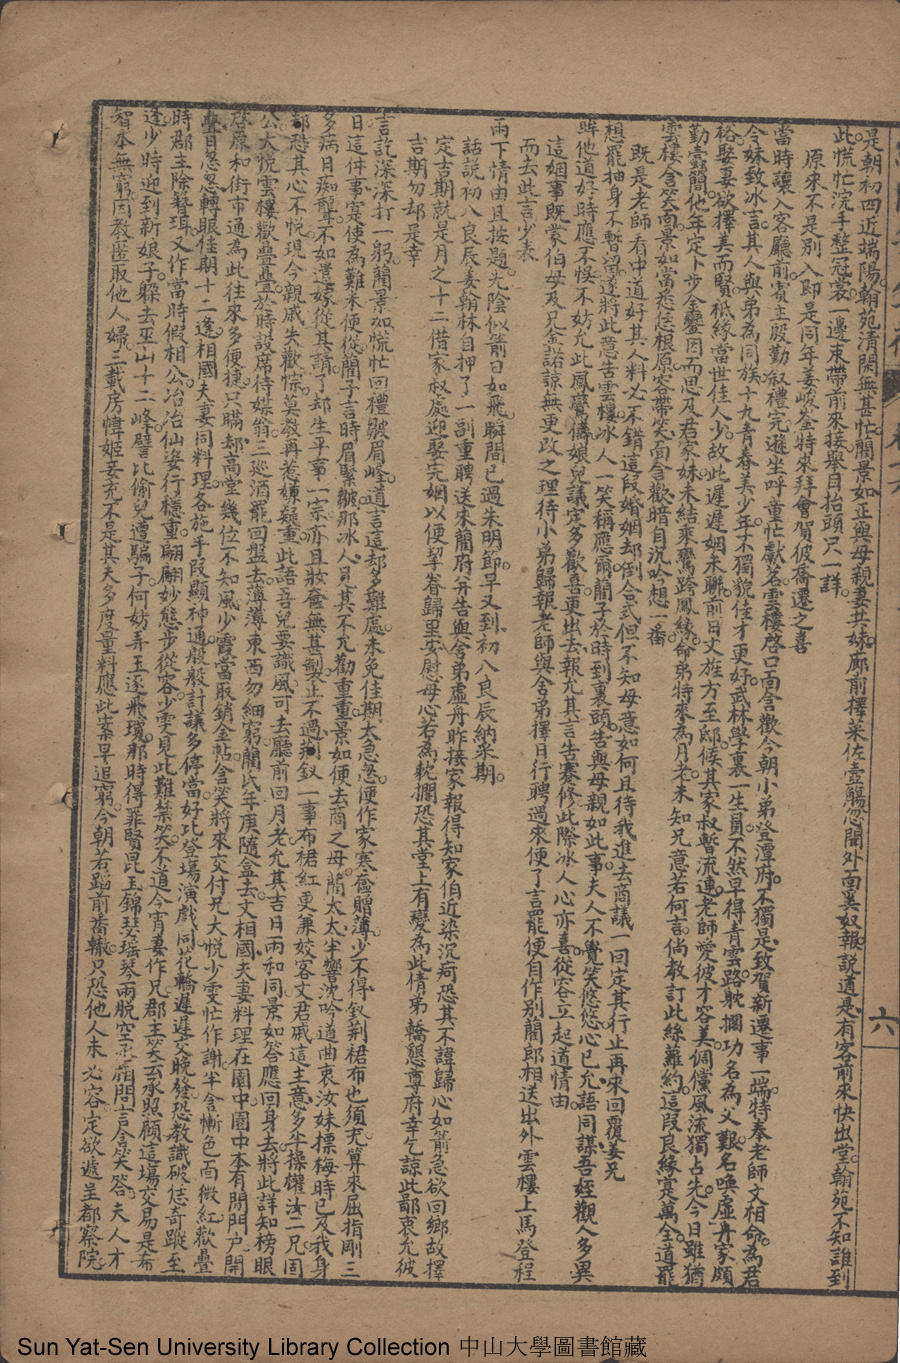 是朝初四近端陽翰苑清閑無甚忙藺景如正與母親妻共妹廊前擇菜佐壺觴忽聞外面奚奴報說道是有客前來快出堂翰苑不知誰到
此慌忙浣手整冠裳一邊束帶前來接舉目抬頭只一詳
原來不是別人即是同年姜峻峯特來拜會賀彼喬遷之喜
當時讓入客廳前賓主殷勤叙禮完遜坐呼童忙獻茗雲樓啓口面含歡今朝小弟登潭府不獨是致賀新遷事一端特奉老師文相命為君
令妹致冰言其人與弟為同族十九青春美少年不獨貌佳才更好武林學裏一生員不然早得青雲路躭擱功名為父艱名喚虛舟家頗
裕娶妻欲擇美而賢祗緣當世佳人少故此遲遲姻未聯前日文旌方至邸候其家叔暫流連老師愛彼才容美倜儻風流獨占先今日雖猶
勤壹簡他年定卜步金鑾因而思及君家妹未結乘鸞跨鳳緣命弟特來為月老未知兄意若何言倘教訂此絲蘿約這段良緣寔萬全道罷
雲樓含笑面景如當悉恁根原容帶笑面含歡暗自沉吟想一番
既是老師看中道好其人料必不錯這段婚姻却倒合式但不知母意如何且待我進去商議一回定其行止再來回覆姜兄
想罷抽身不暫留遂將此意告雲樓冰人一笑稱應爾藺子於時到裏頭告與母親如此事夫人不覺笑悠悠心已允語同謀吾姪觀人多異
眸他道好時應不悞不妨允此風鸞儔娘兒議定多歡喜更出去報允其言告蹇修此際冰人心亦喜從容立起道情由
這姻事既蒙伯母及兄金諾諒無更改之理待小弟歸報老師與舍弟擇日行聘過來便了言罷便自作別藺郎相送出外雲樓上馬登程
而去此言少表
兩下情由且按題光陰似箭日如飛瞬間已過朱明節早又到初八良辰納采期
話說初八良辰姜翰林自押了一副重聘送來藺府并告與舍弟虛舟昨接家報得知家伯近染沉疴恐其不諱歸心如箭急欲回鄉故擇
定吉期就是月之十二借家叔處迎娶完姻以便挈眷歸里安慰母心若為躭擱恐其堂上有變為此情弟轎懇尊府幸乞諒此鄙衷允彼
吉期勿却是幸
言訖深深打一躬藺景如慌忙回禮皺眉峰道言這却多難處未免佳期太急怱便作家寒奩贈薄少不得釵荊裙布也須充算來屈指剛三
日這件事寔使為難未便從藺子言時眉緊皺那冰人見其不允勸重重景如便去商之母藺太太半響沈吟道曲衷汝妹摽梅時已及我身
多病日痴聾不如遣嫁從其請了却生平事一宗亦且妝奩無甚製止不過荊釵一事布裙紅更兼姣客文君戚這主意多半操權汝二兄固
却恐其心不悅現今親戚失歡悰莫教再惹嫌疑重此語吾兒要識風可去廳前回月老允其吉日兩和同景如答應回身去將此詳知榜眼
公大悅雲樓歡疊疊於時設席待媒翁三巡酒罷回盤去薄薄東西勿細窮藺氏年庚隨盒去文相國夫妻料理在園中園中本有閑門戶開
啓原和街市通為此往來多便捷只瞞却高堂幾位不知風少霞當取銷金帖含笑將來交付兄大悅少雯忙作謝半含慚色面微紅歡疊
疊目怱怱轉眼佳期十二逢相國夫妻同料理各施手叚顯神通般般計議多停當好比登場演戲同花轎遲遲交晚發恐教識破恁奇蹤至
時郡主除簪珥又作當時假相公冶冶仙姿行穩重翩翩妙態步從容少雯見此難禁笑不道今宵妻作兄郡主笑云承照顧這場交易是希
逢少時迎到新娘子躲去巫山十二峰譬比偷兒遭騙子何妨弄玉逐飛瓊那時得罪賢昆玉錦瑟瑶琴兩脫空丞相聞言含笑答夫人才
智本無窮因教匿取他人婦三載房幃姬妾充不是其夫多度量料應此案早追窮今朝若蹈前番轍只恐他人未必容定欲遞呈都察院
六
Sun Yat-Sen University Library Collection 中山大學圖書館藏